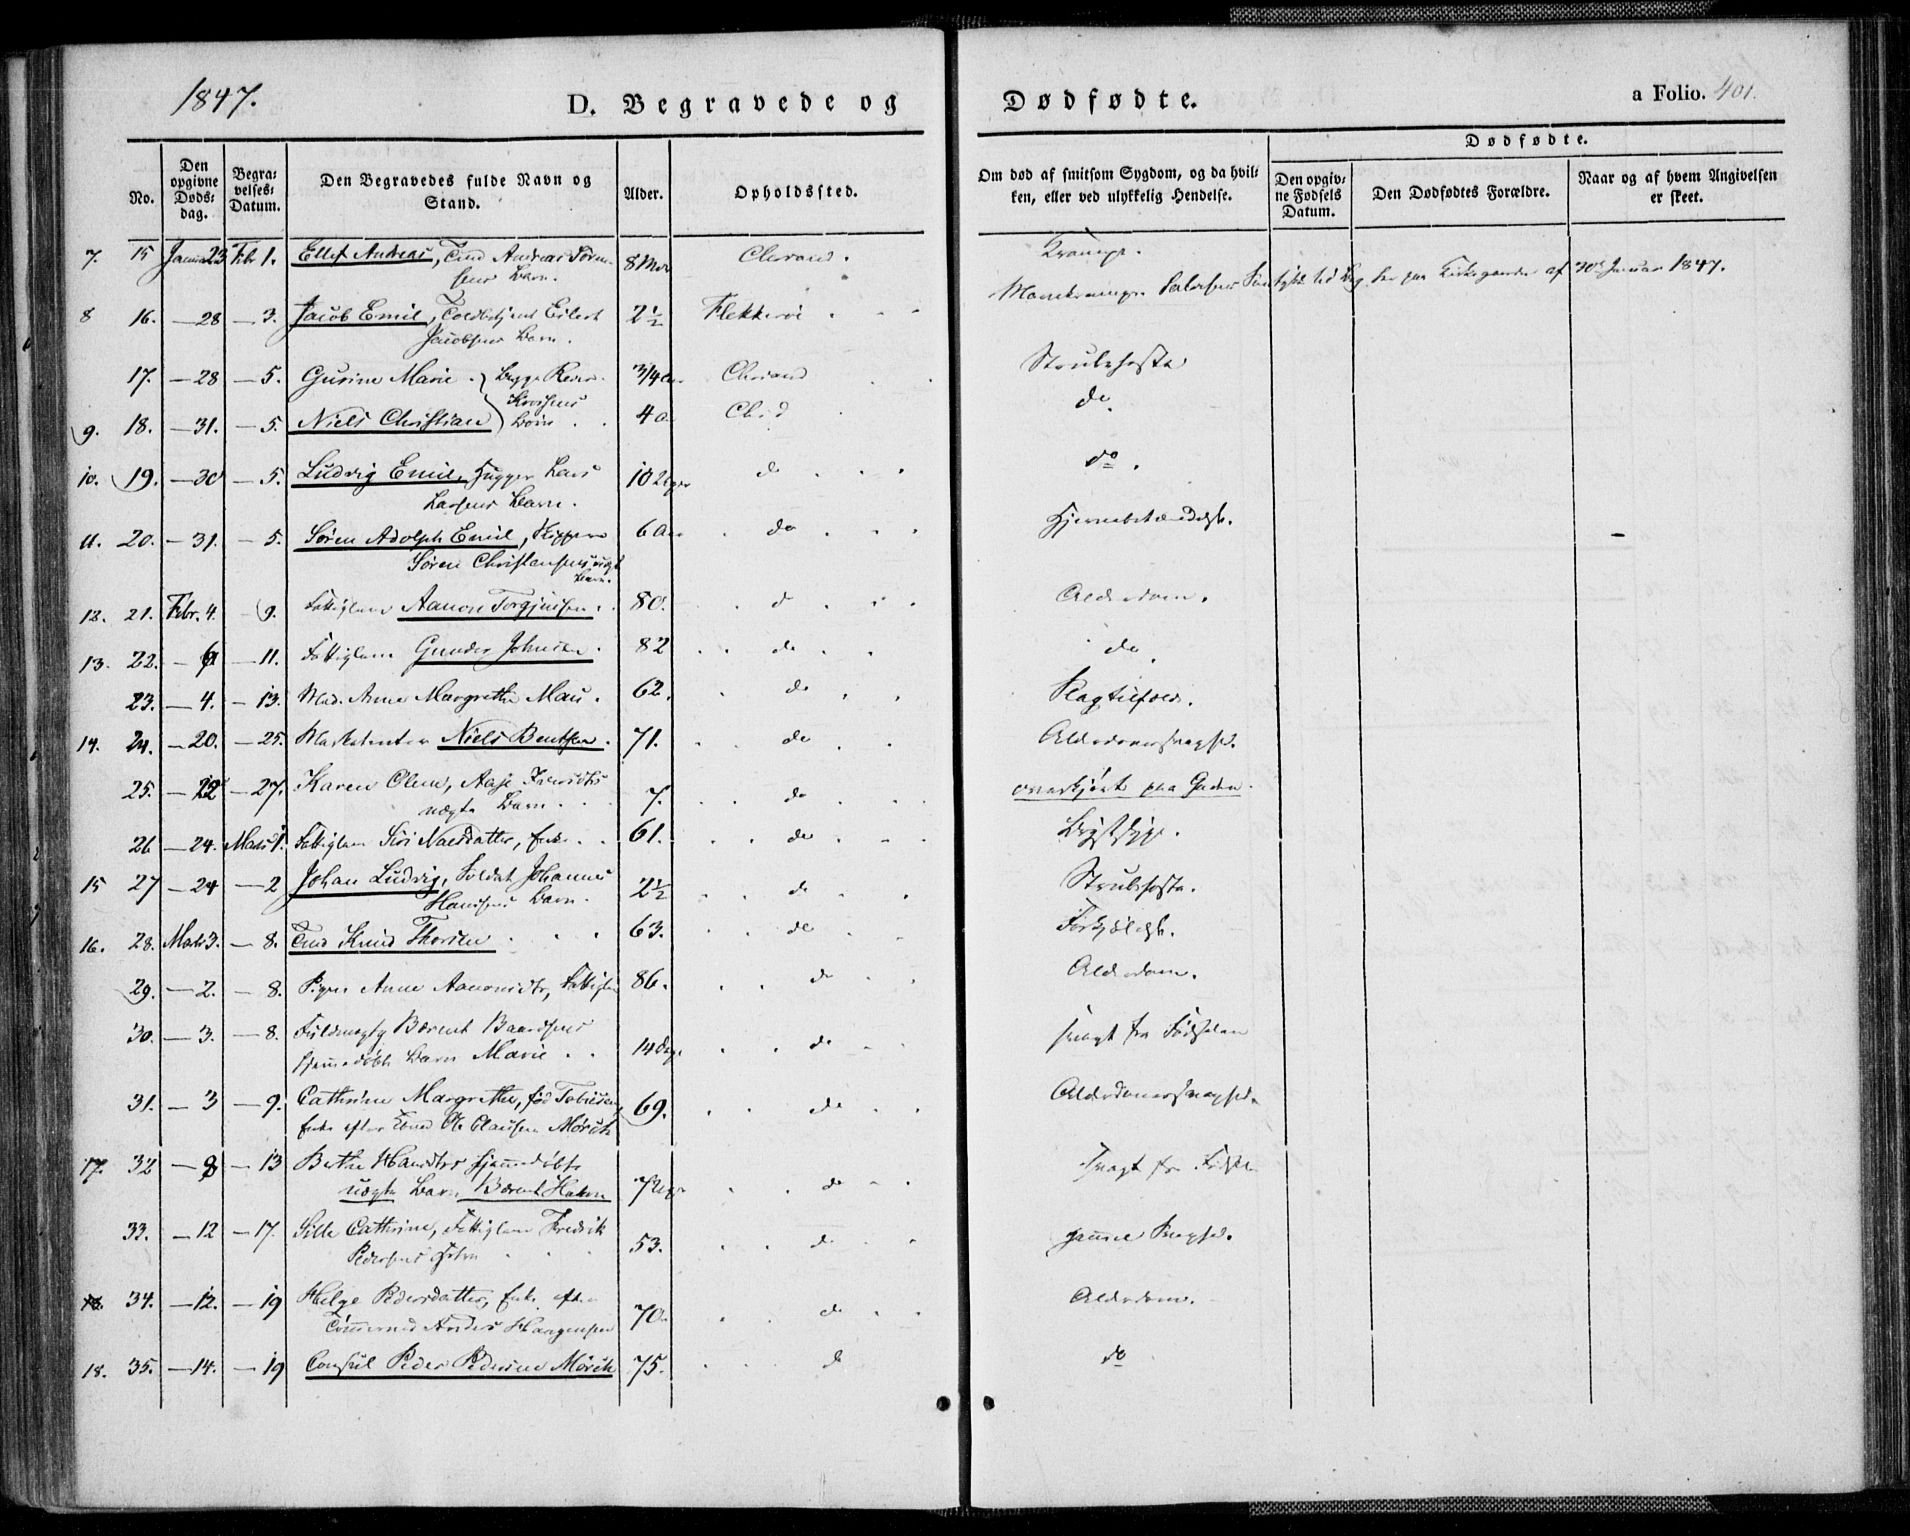 1847.
D. Begravede og Dødfødte.
a Folio. 401.
No.
Den opgivne Døds-dag.
Begra-velses-Datum.
Den Begravedes fulde Navn og Stand.
Alder.
Opholdssted.
Om død af smitsom Sygdom, og da hvil-ken, eller ved ulykkelig Hendelse.
Dødfødte.
Den opgiv-ne Fødsels Datum.
Den Dødfødtes Forældre.
Naar og af hvem Angivelsen er skeet.
7. 15 Januar 23 Febr 1. Ellef Andreas, Tmd Andreas Søren-
sens Barn. 8 Mdr Chrsand. Krampe.
8 16. — 28 — 3. Jacob Emil, Toldbetjent Eilert
Jacobsens Barn. 2½ Flekkerøe
30te Januar 1847.
17. — 28 — 5. Gurine Marie. Begge Reier 3/4 Chrsand Strubehoste
9. 18. — 31. — 5. Niels Christian Børn 4 a Chrsd do
10. 19. — 30 — 5. Ludvig Emil, Hugger Lars
Larsens Barn. 10 Uger do do.
11. 20. — 31. — 5. Søren Adolph Emil, Skipper
Søren Christensens uægt
Barn. 6 Aar do Hjernebetændelse.
12. 21. Febr. 4. — 9. Fattiglem Aanon Torgjusen. 80. do Alderdom.
13. 22. — 6 — 11. Fattiglem Gunder Johnsen. 82 do do
23. — 4. — 13. Mad. Anne Margrethe Mau. 62. do Slagtilfæld.
14. 24. — 20. — 25. Marketenter Niels Bentsen. 71. do Alderdomssvaghed.
25. — 22 — 27. Karen Oline, Aase
uægte Barn. 7. do overkjørt paa Gaden.
26 — 24. Marts 1. Fattiglem Siri Nielsdatter, Enke. 61. do Brystsyge.
15 27 — 24 — 2 Johan Ludvig, Soldat Johannes
Hansens Barn. 2½ do Strubehoste.
16. 28. Marts 3. — 8. Tmd Knud Thorsen 63. do Forkjølelse.
29. — 2. — 8. Pigen Anne Aanonsdtr, Fattiglem 86. do Alderdom.
30. — 3. — 8. Fuldmægtig Bærent Baardsens
hjemmedøbte Barn Marie 14 Dage do svagt fra Fødselen
31. — 3 — 9. Cathrine Margrethe, fød Tobiesen,
Enke efter Ole Clausen Mørch 69. do Alderdomssvaghed.
17. 32 — 8 — 13 Berthe Hansdtrs hjemmedøbte
uægte Barn Bærent Hakon 7 Uger do svagt fra Fødsel
33. — 12 — 17. Sille Cathrine, Fattiglem Fredrik
Pedersens Enke 53. do gammel Svaghed.
18. 34. — 12. — 19 Helge Pedersdatter, Enke efter
Tømmermd Anders Haagensen 70. do Alderdom.
18. 35. — 14. — 19 Consul Peder Pedersen Mørch 75. do do